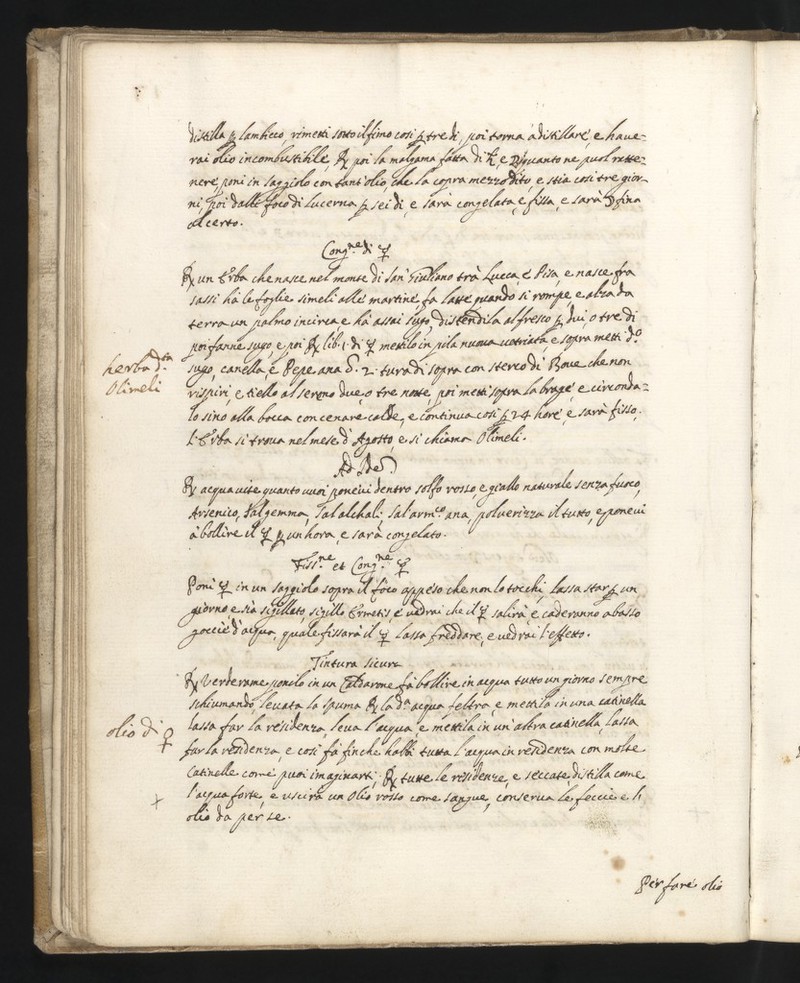 distilla ꝑ lambicco, rimetti sotto il fimo cosi ꝑ tre di, poi torna à distillare, e haue=
rai olio incombustibile, ℞ poi la malgama fatta di ♄ e quanto ne puol ritte=
nere, poni in saggiolo con tant'olio, che la copra mezzo dito, e stia cosi tre gior=
ni, poi dalli foco di lucerna ꝑ sei di, e sarà congelata, e fissa, e sarà ☽ fina
al certo.
Cong.ne di ☿
℞ un Erba che nasce nel monte di san Giuliano trà Lucca, e Pisa, e nasce fra
sassi hà le foglie simeli alle martine, fa latte quando si rompe, e alza da
terra un palmo incirca e hà assai sugo, distendila al fresco ꝑ dui, o tre di
poi fanne sugo, e poi ℞ lib. 1. di ☿ mettilo in pila nuoua uetriata e sopra metti d.o
sugo, canella, e Pepe ana 2. tura di sopra con sterco di Boue che non
rispiri, e tiello al sereno due, o tre notte, poi metti sopra la brage, e circonda=
lo sino alla bocca con cenare calde, e continua cosi ꝑ 24 hore, e sarà fisso,
l'Erba si troua nel mese d'Agosto, e si chiama Olimeli.
herba d.ta
Olimeli
Ad Idem
℞ acqua uite quanto uuoi poneui dentro solfo rosso, e giallo naturale senza fuoco,
Arsenico, Sal gemma, sal alchali, sal arm.co ana, poluerizza il tutto, e poneui
à bollire il ☿ ꝑ un hora, e sarà congelato.
Fiss.ne et Cong.ne ☿
Poni ☿ in un saggiolo sopra il foco appeso che non lo tocchi, lassa star ꝑ un
giorno e sia sigillato, sigillo Ermetis, e uedrai che il ☿ salirà, e caderanno abasso
goccie d'acqua, quale fissarà il ☿ lassa freddare, e uedrai l'effetto.
Tintura sicura
℞ Verderame ponilo in un Caldarone fà bollire in acqua tutto un giorno sempre
schiumando, leuata la spuma ℞ la d.a acqua feltra, e mettila in una catinella
lassa far la residenza, leua l'acqua, e mettila in un'altra catinella, lassa
far la residenza, e cosi fà finche habbi tutta l'acqua in residenza con molte
Catinelle come puoi imaginarti, ℞ tutte le residenze, e seccate distilla come
l'acqua forte, e uscirà un olio rosso come sangue, conserua le feccie e l'
olio da per se.
olio di ♀
+
Per fare olio